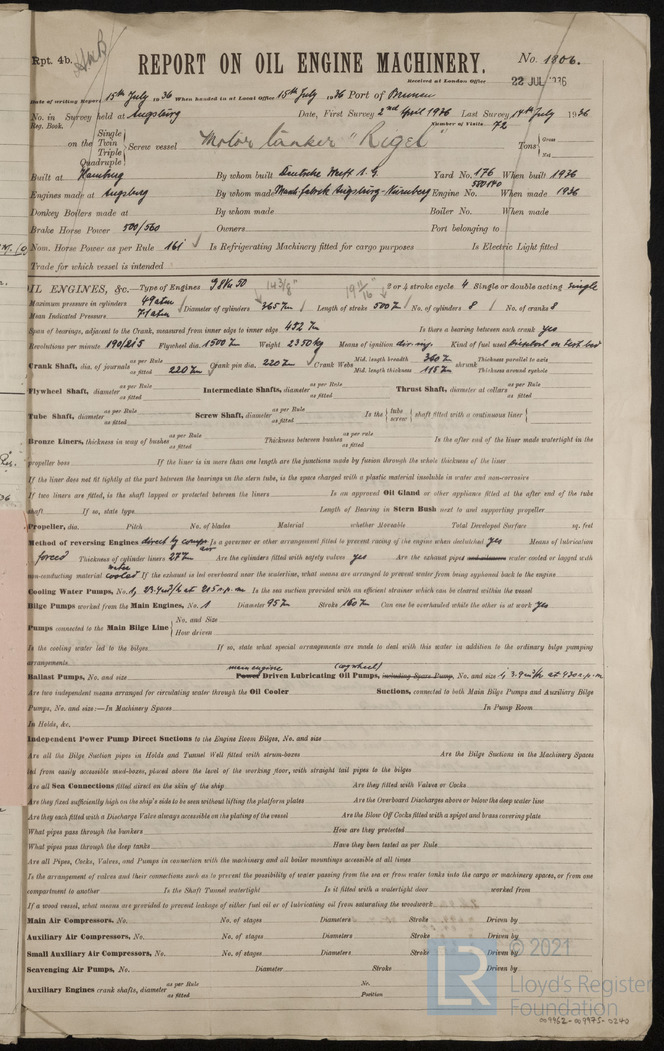 Rpt. 4b.
REPORT ON OIL ENGINE MACHINERY.
No. 1806.
Received at London Office
22 JUL 1936
Date of writing Report 15th July 1936 When handed in at Local Office 15th July 1936 Port of Bremen
No. in Survey held at Augsburg Date, First Survey 2nd April 1936 Last Survey 14th July 1936
Reg. Book. Number of Visits 72
on the Single Twin Triple Quadruple Screw vessel Motor tanker "Rigel" Tons Gross Net
Built at Hamburg By whom built Deutsche Werft A.G. Yard No. 176 When built 1936
Engines made at Augsburg By whom made Masch. fabrik Augsburg-Nürnberg Engine No. 580140 When made 1936
Donkey Boilers made at By whom made Boiler No. When made
Brake Horse Power 500/560 Owners Port belonging to
Nom. Horse Power as per Rule 161 Is Refrigerating Machinery fitted for cargo purposes Is Electric Light fitted
Trade for which vessel is intended
OIL ENGINES, &c.—Type of Engines 2 or 4 stroke cycle 4 Single or double acting single
14 3/8" 19 11/16"
Maximum pressure in cylinders 49 atm Diameter of cylinders 365 Length of stroke 500 No. of cylinders 8 No. of cranks 8
Mean Indicated Pressure 7.1 atm
Span of bearings, adjacent to the Crank, measured from inner edge to inner edge 452 Is there a bearing between each crank yes
Revolutions per minute 190/215 Flywheel dia. 1500 Weight 2350 kg Means of ignition Kind of fuel used
Crank Shaft, dia. of journals as per Rule as fitted 220 Crank pin dia. 220 Crank Webs Mid. length breadth 360 Mid. length thickness 115 shrunk Thickness parallel to axis Thickness around eyehole
Flywheel Shaft, diameter as per Rule as fitted Intermediate Shafts, diameter as per Rule as fitted Thrust Shaft, diameter at collars as per Rule as fitted
Tube Shaft, diameter as per Rule as fitted Screw Shaft, diameter as per Rule as fitted Is the tube screw shaft fitted with a continuous liner
Bronze Liners, thickness in way of bushes as per Rule as fitted Thickness between bushes as per rule as fitted Is the after end of the liner made watertight in the
propeller boss If the liner is in more than one length are the junctions made by fusion through the whole thickness of the liner
If the liner does not fit tightly at the part between the bearings in the stern tube, is the space charged with a plastic material insoluble in water and non-corrosive
If two liners are fitted, is the shaft lapped or protected between the liners Is an approved Oil Gland or other appliance fitted at the after end of the tube
shaft If so, state type Length of Bearing in Stern Bush next to and supporting propeller
Propeller, dia. Pitch No. of blades Material whether Moveable Total Developed Surface sq. feet
Method of reversing Engines direct by compr. air Is a governor or other arrangement fitted to prevent racing of the engine when declutched yes Means of lubrication
forced Thickness of cylinder liners 27 Are the cylinders fitted with safety valves yes Are the exhaust pipes and silencers water cooled or lagged with
non-conducting material water cooled If the exhaust is led overboard near the waterline, what means are arranged to prevent water from being syphoned back to the engine
Cooling Water Pumps, No. Is the sea suction provided with an efficient strainer which can be cleared within the vessel
Bilge Pumps worked from the Main Engines, No. 1 Diameter 95 Stroke 160 Can one be overhauled while the other is at work yes
Pumps connected to the Main Bilge Line No. and Size How driven
Is the cooling water led to the bilges If so, state what special arrangements are made to deal with this water in addition to the ordinary bilge pumping
arrangements
Ballast Pumps, No. and size main engine Power Driven Lubricating Oil Pumps, (cogwheel) including Spare Pump, No. and size
Are two independent means arranged for circulating water through the Oil Cooler Suctions, connected to both Main Bilge Pumps and Auxiliary Bilge
Pumps, No. and size:—In Machinery Spaces In Pump Room
In Holds, &c.
Independent Power Pump Direct Suctions to the Engine Room Bilges, No. and size
Are all the Bilge Suction pipes in Holds and Tunnel Well fitted with strum-boxes Are the Bilge Suctions in the Machinery Spaces
led from easily accessible mud-boxes, placed above the level of the working floor, with straight tail pipes to the bilges
Are all Sea Connections fitted direct on the skin of the ship Are they fitted with Valves or Cocks
Are they fixed sufficiently high on the ship's side to be seen without lifting the platform plates Are the Overboard Discharges above or below the deep water line
Are they each fitted with a Discharge Valve always accessible on the plating of the vessel Are the Blow Off Cocks fitted with a spigot and brass covering plate
What pipes pass through the bunkers How are they protected
What pipes pass through the deep tanks Have they been tested as per Rule
Are all Pipes, Cocks, Valves, and Pumps in connection with the machinery and all boiler mountings accessible at all times
Is the arrangement of valves and their connections such as to prevent the possibility of water passing from the sea or from water tanks into the cargo or machinery spaces, or from one
compartment to another Is the Shaft Tunnel watertight Is it fitted with a watertight door worked from
If a wood vessel, what means are provided to prevent leakage of either fuel oil or of lubricating oil from saturating the woodwork
Main Air Compressors, No. No. of stages Diameters Stroke Driven by
Auxiliary Air Compressors, No. No. of stages Diameters Stroke Driven by
Small Auxiliary Air Compressors, No. No. of stages Diameters Stroke Driven by
Scavenging Air Pumps, No. Diameter Stroke Driven by
Auxiliary Engines crank shafts, diameter as per Rule as fitted No. Position
© 2021
LR
Lloyd's Register
Foundation
009962-009975-0240